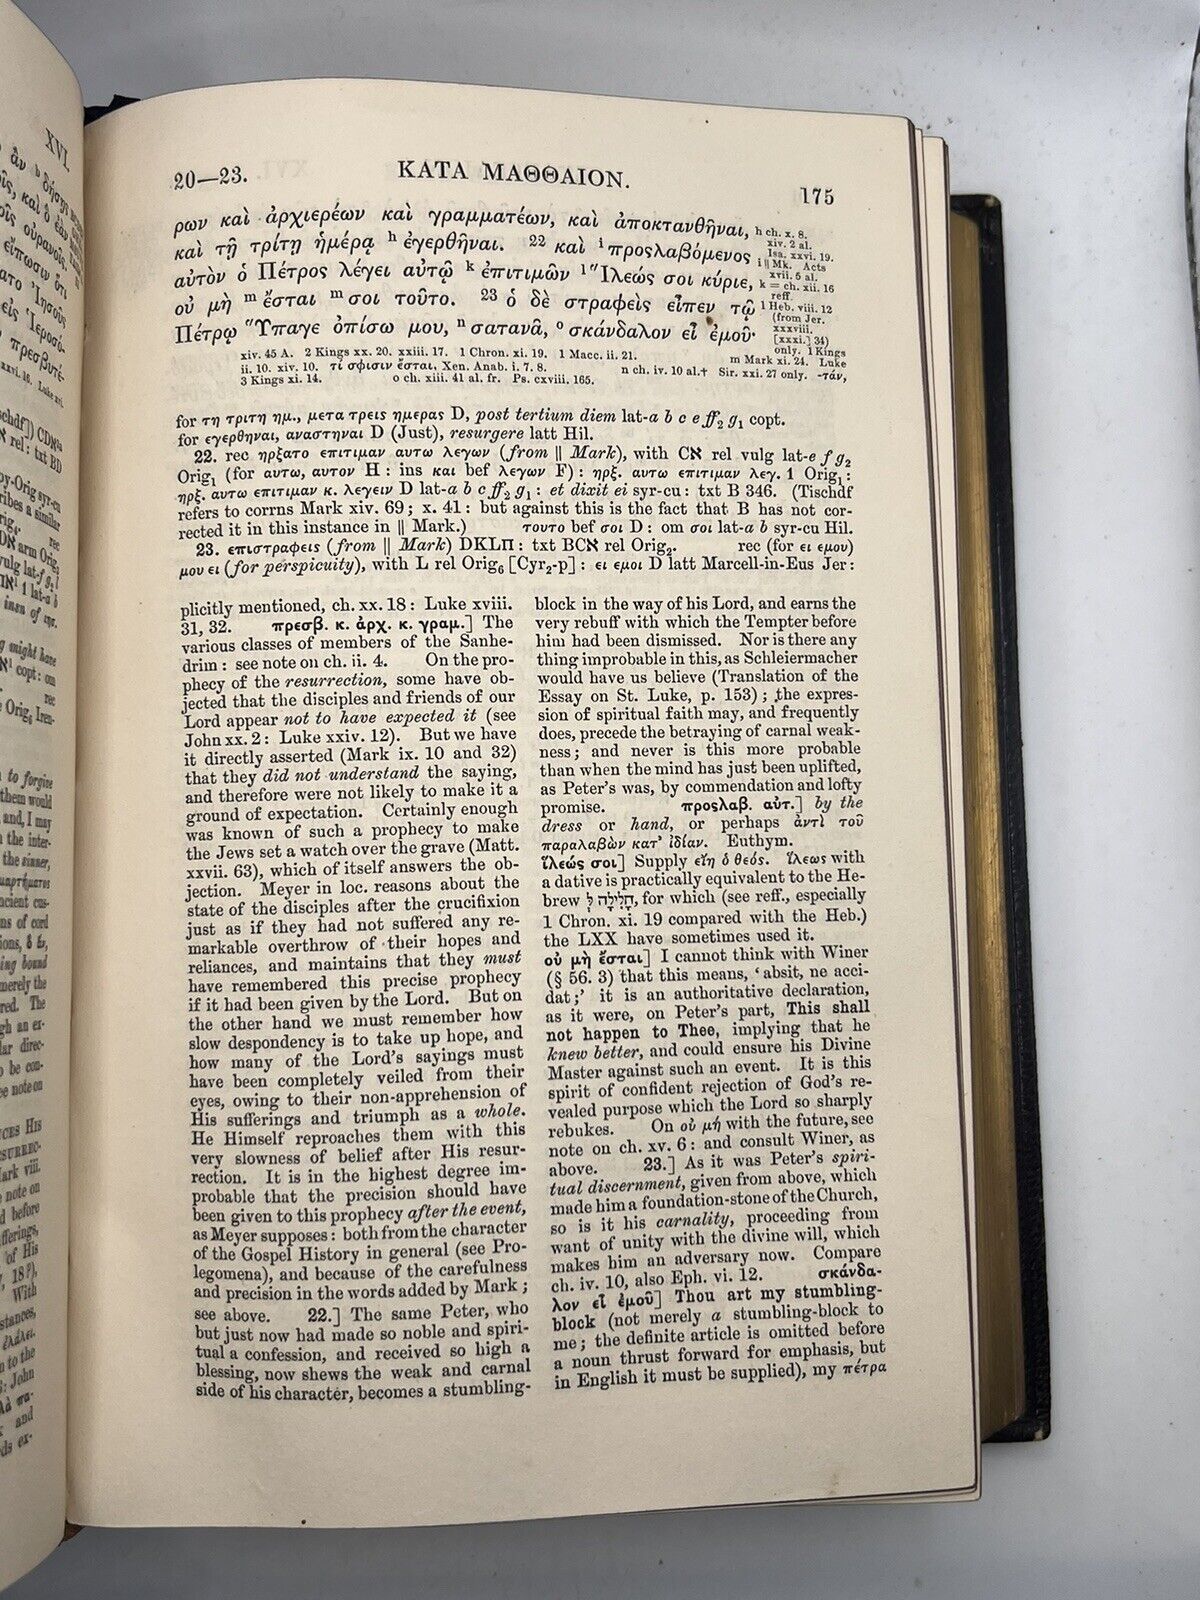 XVI.
20—23.
ΚΑΤΑ ΜΑΘΘΑΙΟΝ.
175
ρων καὶ ἀρχιερέων καὶ γραμματέων, καὶ ἀποκτανθῆναι,
καὶ τῇ τρίτῃ ἡμέρᾳ h ἐγερθῆναι. 22 καὶ i προςλαβόμενος
αὐτὸν ὁ Πέτρος λέγει αὐτῷ k ἐπιτιμῶν l Ἵλεώς σοι κύριε,
οὐ μὴ m ἔσται m σοι τοῦτο. 23 ὁ δὲ στραφεὶς εἶπεν τῷ
Πέτρῳ Ὕπαγε ὀπίσω μου, n σατανᾶ, o σκάνδαλον εἶ ἐμοῦ·
h ch. x. 8.
xiv. 2 al.
Isa. xxvi. 19.
i || Mk. Acts
xvii. 5 al.
k = ch. xii. 16
reff.
l Heb. viii. 12
(from Jer.
xxxviii.
[xxxi.] 34)
only. 1 Kings
xiv. 45 A. 2 Kings xx. 20. xxiii. 17. 1 Chron. xi. 19. 1 Macc. ii. 21. m Mark xi. 24. Luke
ii. 10. xiv. 10. τί σφισιν ἔσται, Xen. Anab. i. 7. 8. n ch. iv. 10 al.† Sir. xxi. 27 only. -τάν,
3 Kings xi. 14. o ch. xiii. 41 al. fr. Ps. cxviii. 165.
for τη τριτη ημ., μετα τρεις ημερας D, post tertium diem lat-a b c e ff2 g1 copt.
for εγερθηναι, αναστηναι D (Just), resurgere latt Hil.
22. rec ηρξατο επιτιμαν αυτω λεγων (from || Mark), with Cℵ rel vulg lat-e f g2
Orig1 (for αυτω, αυτον H : ins και bef λεγων F) : ηρξ. αυτω επιτιμαν λεγ. 1 Orig1 :
ηρξ. αυτω επιτιμαν κ. λεγειν D lat-a b c ff2 g1 : et dixit ei syr-cu : txt B 346. (Tischdf
refers to corrns Mark xiv. 69 ; x. 41 : but against this is the fact that B has not cor-
rected it in this instance in || Mark.) τουτο bef σοι D : om σοι lat-a b syr-cu Hil.
23. επιστραφεις (from || Mark) DKLΠ : txt BCℵ rel Orig2. rec (for ει εμου)
μου ει (for perspicuity), with L rel Orig6 [Cyr2-p] : ει εμοι D latt Marcell-in-Eus Jer :
plicitly mentioned, ch. xx. 18 : Luke xviii.
31, 32. πρεσβ. κ. ἀρχ. κ. γραμ.] The
various classes of members of the Sanhe-
drim : see note on ch. ii. 4. On the pro-
phecy of the resurrection, some have ob-
jected that the disciples and friends of our
Lord appear not to have expected it (see
John xx. 2 : Luke xxiv. 12). But we have
it directly asserted (Mark ix. 10 and 32)
that they did not understand the saying,
and therefore were not likely to make it a
ground of expectation. Certainly enough
was known of such a prophecy to make
the Jews set a watch over the grave (Matt.
xxvii. 63), which of itself answers the ob-
jection. Meyer in loc. reasons about the
state of the disciples after the crucifixion
just as if they had not suffered any re-
markable overthrow of their hopes and
reliances, and maintains that they must
have remembered this precise prophecy
if it had been given by the Lord. But on
the other hand we must remember how
slow despondency is to take up hope, and
how many of the Lord's sayings must
have been completely veiled from their
eyes, owing to their non-apprehension of
His sufferings and triumph as a whole.
He Himself reproaches them with this
very slowness of belief after His resur-
rection. It is in the highest degree im-
probable that the precision should have
been given to this prophecy after the event,
as Meyer supposes : both from the character
of the Gospel History in general (see Pro-
legomena), and because of the carefulness
and precision in the words added by Mark ;
see above. 22.] The same Peter, who
but just now had made so noble and spiri-
tual a confession, and received so high a
blessing, now shews the weak and carnal
side of his character, becomes a stumbling-
block in the way of his Lord, and earns the
very rebuff with which the Tempter before
him had been dismissed. Nor is there any
thing improbable in this, as Schleiermacher
would have us believe (Translation of the
Essay on St. Luke, p. 153) ; the expres-
sion of spiritual faith may, and frequently
does, precede the betraying of carnal weak-
ness ; and never is this more probable
than when the mind has just been uplifted,
as Peter's was, by commendation and lofty
promise. προςλαβ. αὐτ.] by the
dress or hand, or perhaps ἀντὶ τοῦ
παραλαβὼν κατ' ἰδίαν. Euthym.
ἵλεώς σοι] Supply εἴη ὁ θεός. ἵλεως with
a dative is practically equivalent to the He-
brew חָלִילָה לְ, for which (see reff., especially
1 Chron. xi. 19 compared with the Heb.)
the LXX have sometimes used it.
οὐ μὴ ἔσται] I cannot think with Winer
(§ 56. 3) that this means, ' absit, ne acci-
dat ;' it is an authoritative declaration,
as it were, on Peter's part, This shall
not happen to Thee, implying that he
knew better, and could ensure his Divine
Master against such an event. It is this
spirit of confident rejection of God's re-
vealed purpose which the Lord so sharply
rebukes. On οὐ μή with the future, see
note on ch. xv. 6 : and consult Winer, as
above. 23.] As it was Peter's spiri-
tual discernment, given from above, which
made him a foundation-stone of the Church,
so is it his carnality, proceeding from
want of unity with the divine will, which
makes him an adversary now. Compare
ch. iv. 10, also Eph. vi. 12. σκάνδα-
λον εἶ ἐμοῦ] Thou art my stumbling-
block (not merely a stumbling-block to
me ; the definite article is omitted before
a noun thrust forward for emphasis, but
in English it must be supplied), my πέτρα